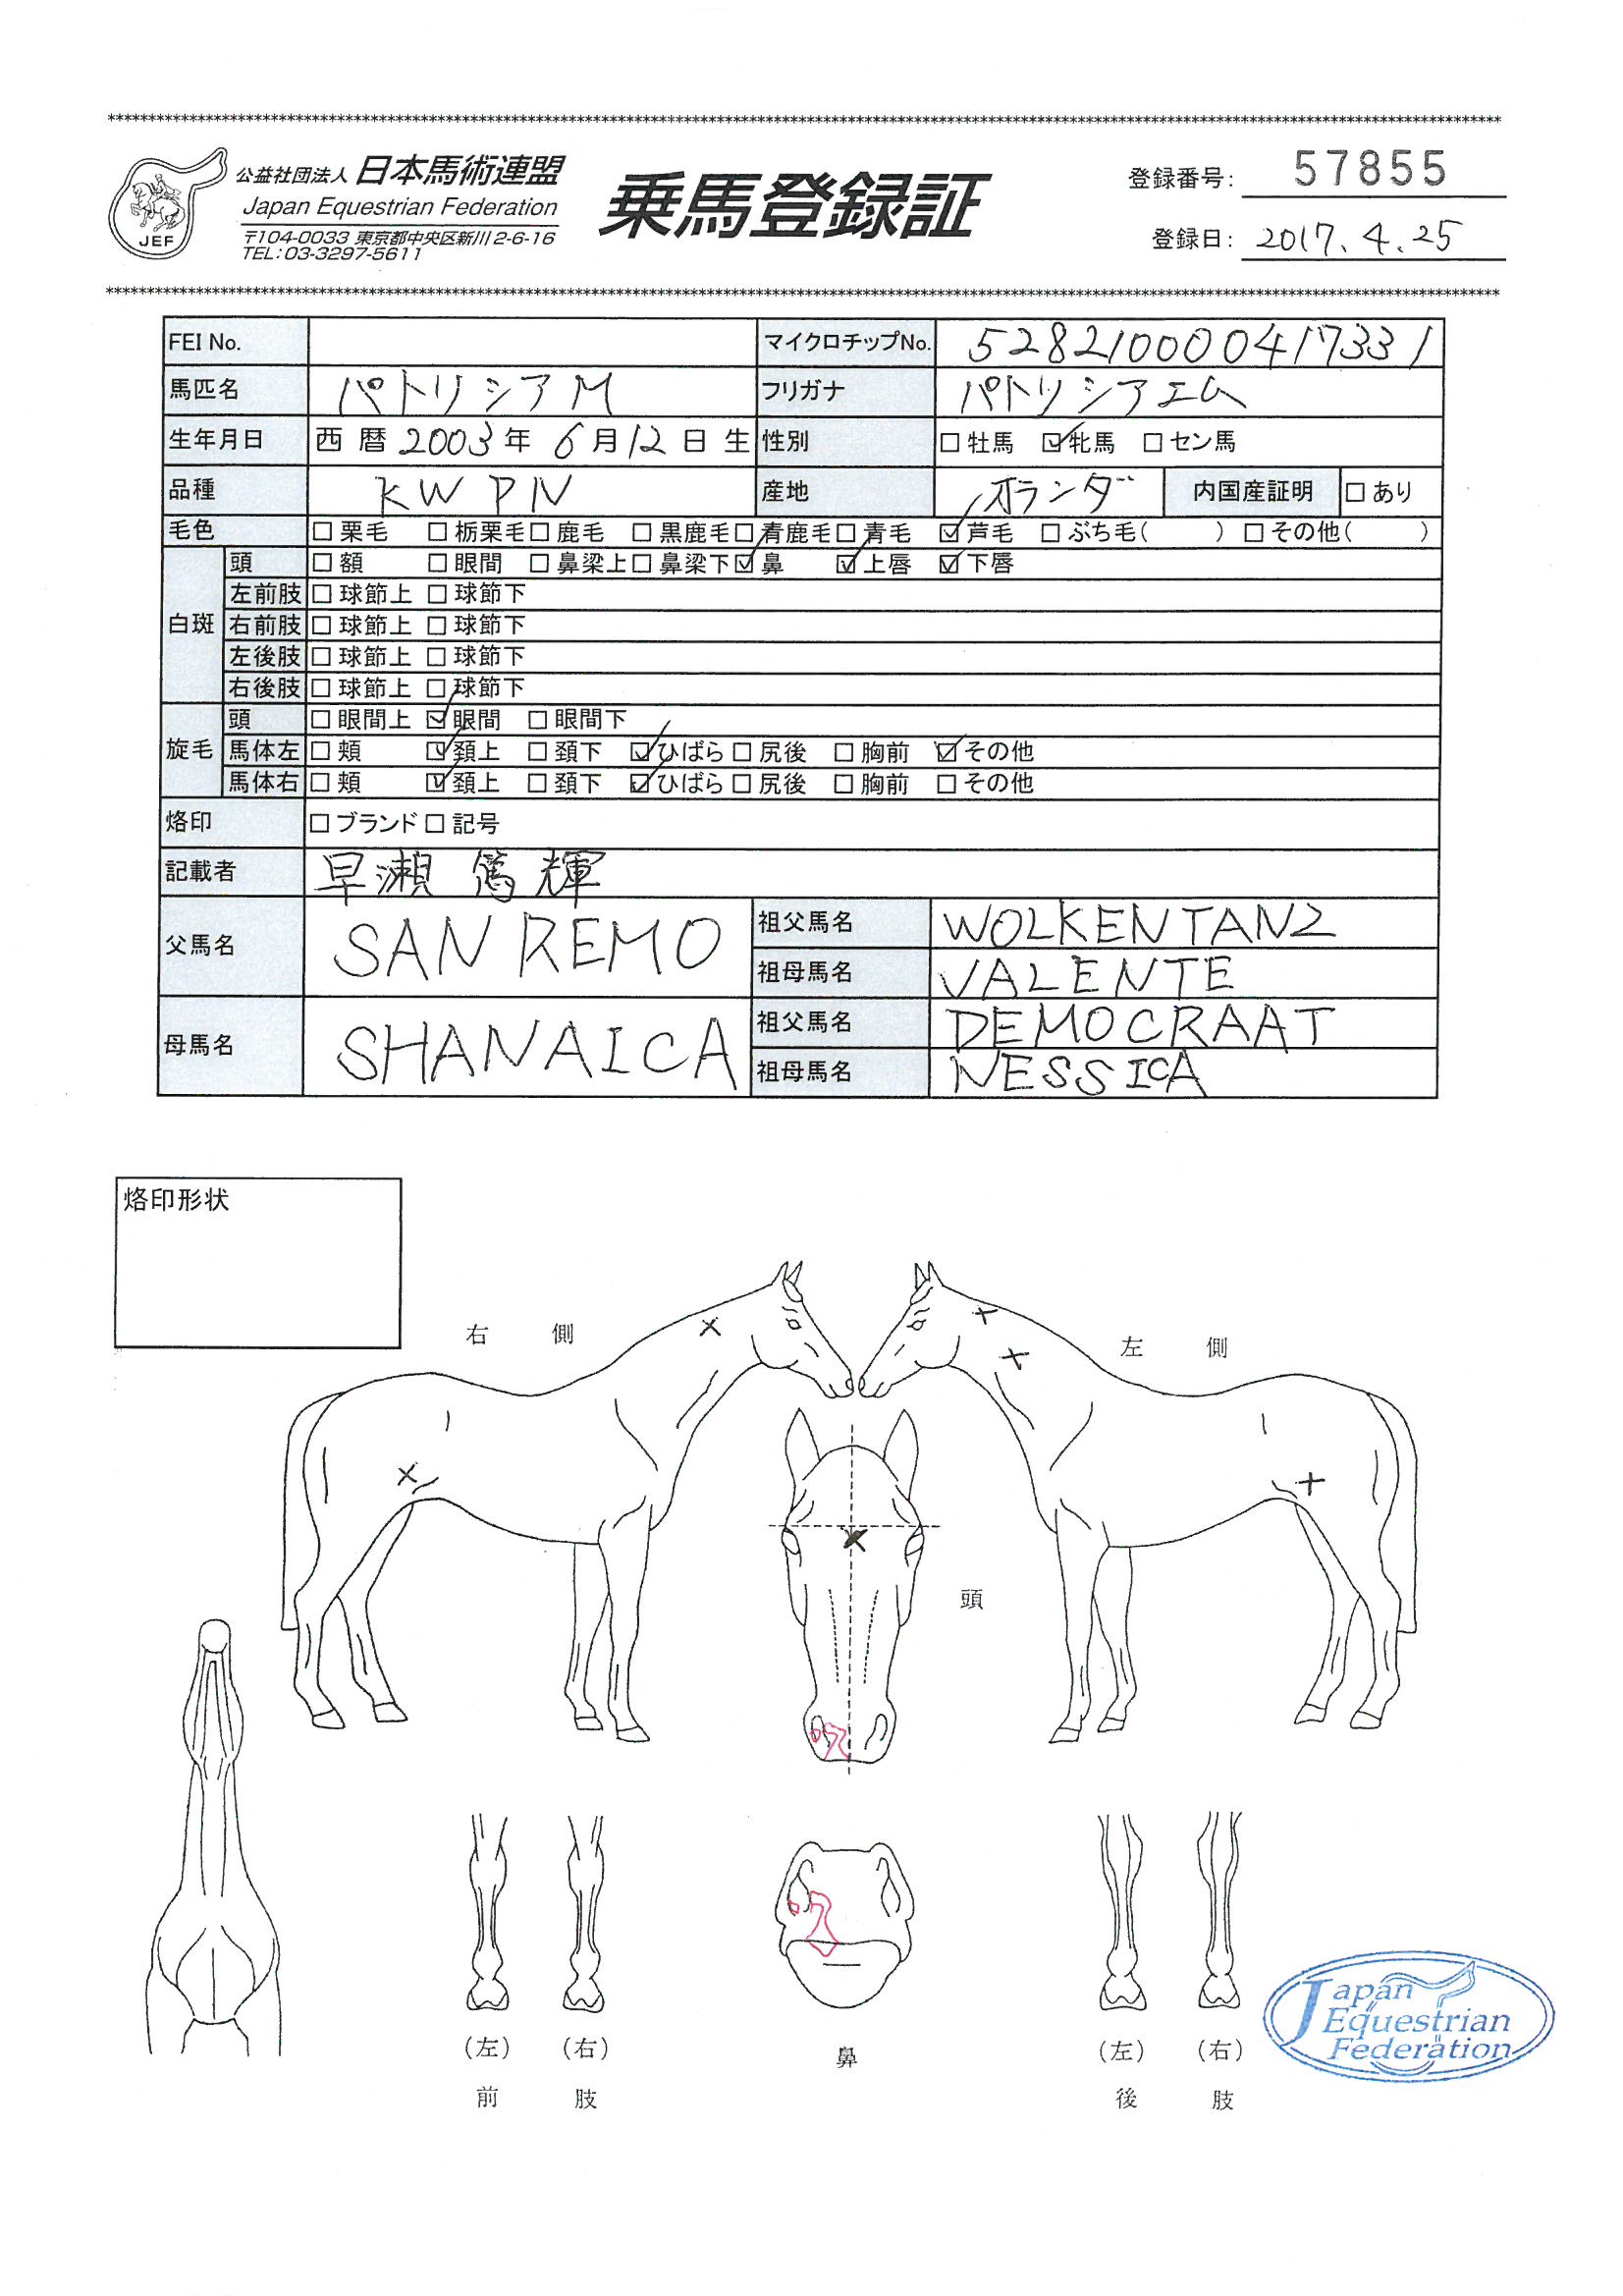 ********************************************************************************
公益社団法人 日本馬術連盟
Japan Equestrian Federation
〒104-0033 東京都中央区新川2-6-16
TEL:03-3297-5611
JEF
乗馬登録証
登録番号: 57855
登録日: 2017.4.25
********************************************************************************
FEI No. マイクロチップNo. 528210000417331
馬匹名 パトリシアM フリガナ パトリシアエム
生年月日 西暦2003年 6月12日生 性別 □牡馬 ☑牝馬 □セン馬
品種 KWPN 産地 オランダ 内国産証明 □あり
毛色 □栗毛 □栃栗毛 □鹿毛 □黒鹿毛 □青鹿毛 □青毛 ☑芦毛 □ぶち毛( ) □その他( )
白斑 頭 □額 □眼間 □鼻梁上 □鼻梁下 ☑鼻 ☑上唇 ☑下唇
左前肢 □球節上 □球節下
右前肢 □球節上 □球節下
左後肢 □球節上 □球節下
右後肢 □球節上 □球節下
旋毛 頭 □眼間上 ☑眼間 □眼間下
馬体左 □頬 ☑頚上 □頚下 ☑ひばら □尻後 □胸前 ☑その他
馬体右 □頬 ☑頚上 □頚下 ☑ひばら □尻後 □胸前 □その他
烙印 □ブランド □記号
記載者 早瀬 篤輝
父馬名 SAN REMO 祖父馬名 WOLKENTANZ
祖母馬名 VALENTE
母馬名 SHANAICA 祖父馬名 DEMOCRAAT
祖母馬名 NESSICA
烙印形状
右 側
左 側
頭
(左) (右) 鼻 (左) (右)
前 肢 後 肢
Japan
Equestrian
Federation